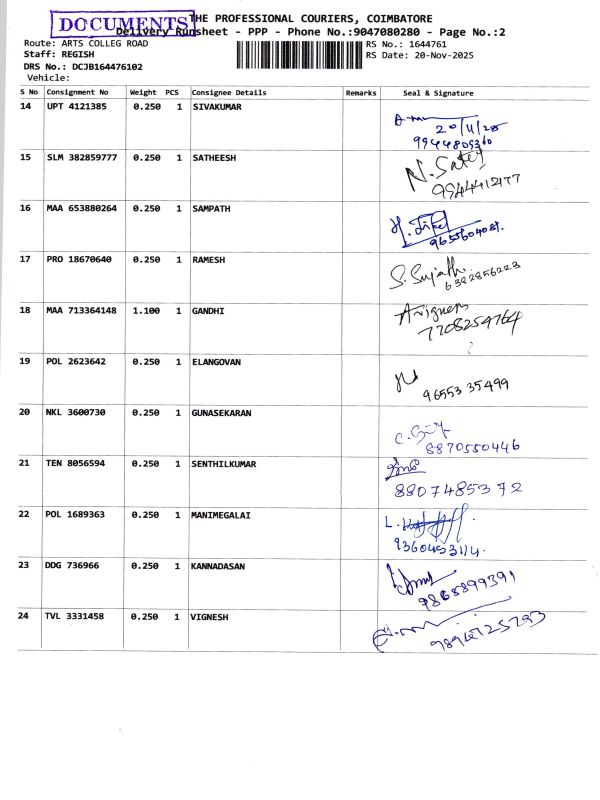 DOCUMENTS
THE PROFESSIONAL COURIERS, COIMBATORE
Delivery Runsheet - PPP - Phone No.:9047080280 - Page No.:2
Route: ARTS COLLEG ROAD
RS No.: 1644761
Staff: REGISH
RS Date: 20-Nov-2025
DRS No.: DCJB164476102
Vehicle:
S No Consignment No Weight PCS Consignee Details Remarks Seal & Signature
14 UPT 4121385 0.250 1 SIVAKUMAR
20/11/25
9944805360
15 SLM 382859777 0.250 1 SATHEESH
N. Satees
16 MAA 653880264 0.250 1 SAMPATH
17 PRO 18670640 0.250 1 RAMESH
S. Sujath
6382856223
18 MAA 713364148 1.100 1 GANDHI
7708254764
19 POL 2623642 0.250 1 ELANGOVAN
96553 35499
20 NKL 3600730 0.250 1 GUNASEKARAN
8870550446
21 TEN 8056594 0.250 1 SENTHILKUMAR
8807485372
22 POL 1689363 0.250 1 MANIMEGALAI
9360453114.
23 DDG 736966 0.250 1 KANNADASAN
9865899391
24 TVL 3331458 0.250 1 VIGNESH
9894725793